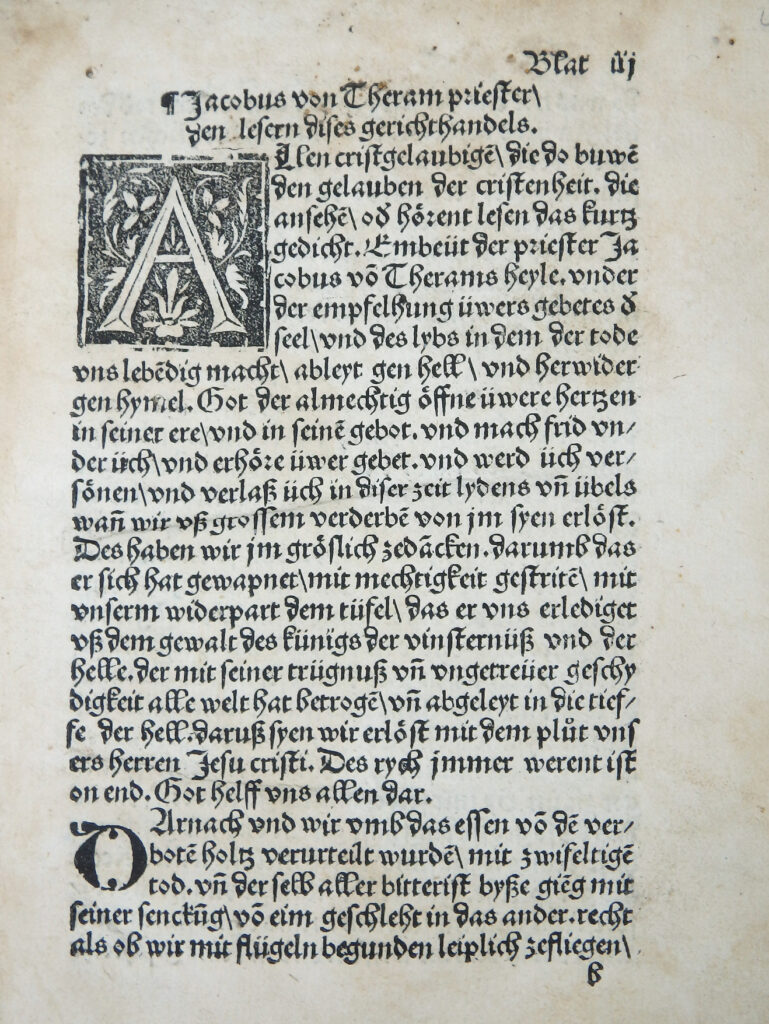 Blat iij
¶ Jacobus von Theram priester\
den lesern dises gerichthandels.
ALlen cristgelaubigē\ die do buwē
den gelauben der cristenheit. die
ansehē\ oď hörent lesen das kurtz
gedicht. Embeüt der priester Ja
cobus vō Therams heyle. vnder
der empfelhung üwers gebetes ď
seel\ vnd des lybs in dem der tode
vns lebēdig macht\ ableyt gen hell\ vnd herwider
gen hymel. Got der almechtig öffne üwere hertzen
in seiner ere\ vnd in seinē gebot. vnd mach frid vn/
der üch\ vnd erhöre üwer gebet. vnd werd üch ver/
sönen\ vnd verlaß üch in diser zeit lydens vn̄ übels
wan̄ wir vß grossem verderbē von jm syen erlöst.
Des haben wir jm gröslich zedäcken. darumb das
er sich hat gewapnet\ mit mechtigkeit gestritē\ mit
vnserm widerpart dem tüfel\ das er vns erlediget
vß dem gewalt des künigs der vinsternüß vnd der
helle. der mit seiner trügnuß vn̄ vngetreüer geschy
digkeit alle welt hat betrogē\ vn̄ abgeleyt in die tief/
fe der hell. daruß syen wir erlöst mit dem plůt vns
ers herren Jesu cristi. Des rych jmmer werent ist
on end. Got helff vns allen dar.
DArnach vnd wir vmb das essen vō dē ver/
botē holtz verurteilt wurdē\ mit zwifeltigē
tod. vn̄ der selb aller bitterist byße giēg mit
seiner senckūg\ vō eim geschleht in das ander. recht
als ob wir mit flügeln begunden leiplich zefliegen\
b